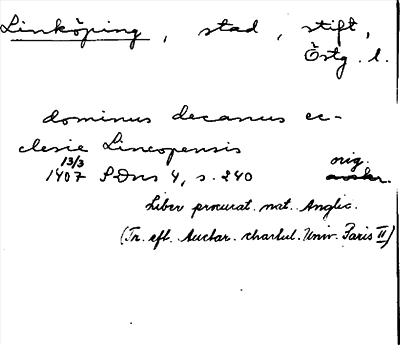 Linköping, stad, stift,
Östg. l.
dominus decanus ec-
clesie Lincopensis
13/3 orig.
1407 SDns 4, s. 240 avskr.
Liber procurat. nat. Anglic.
(Tr. eft. Auctar. chartul. Univ. Paris II)